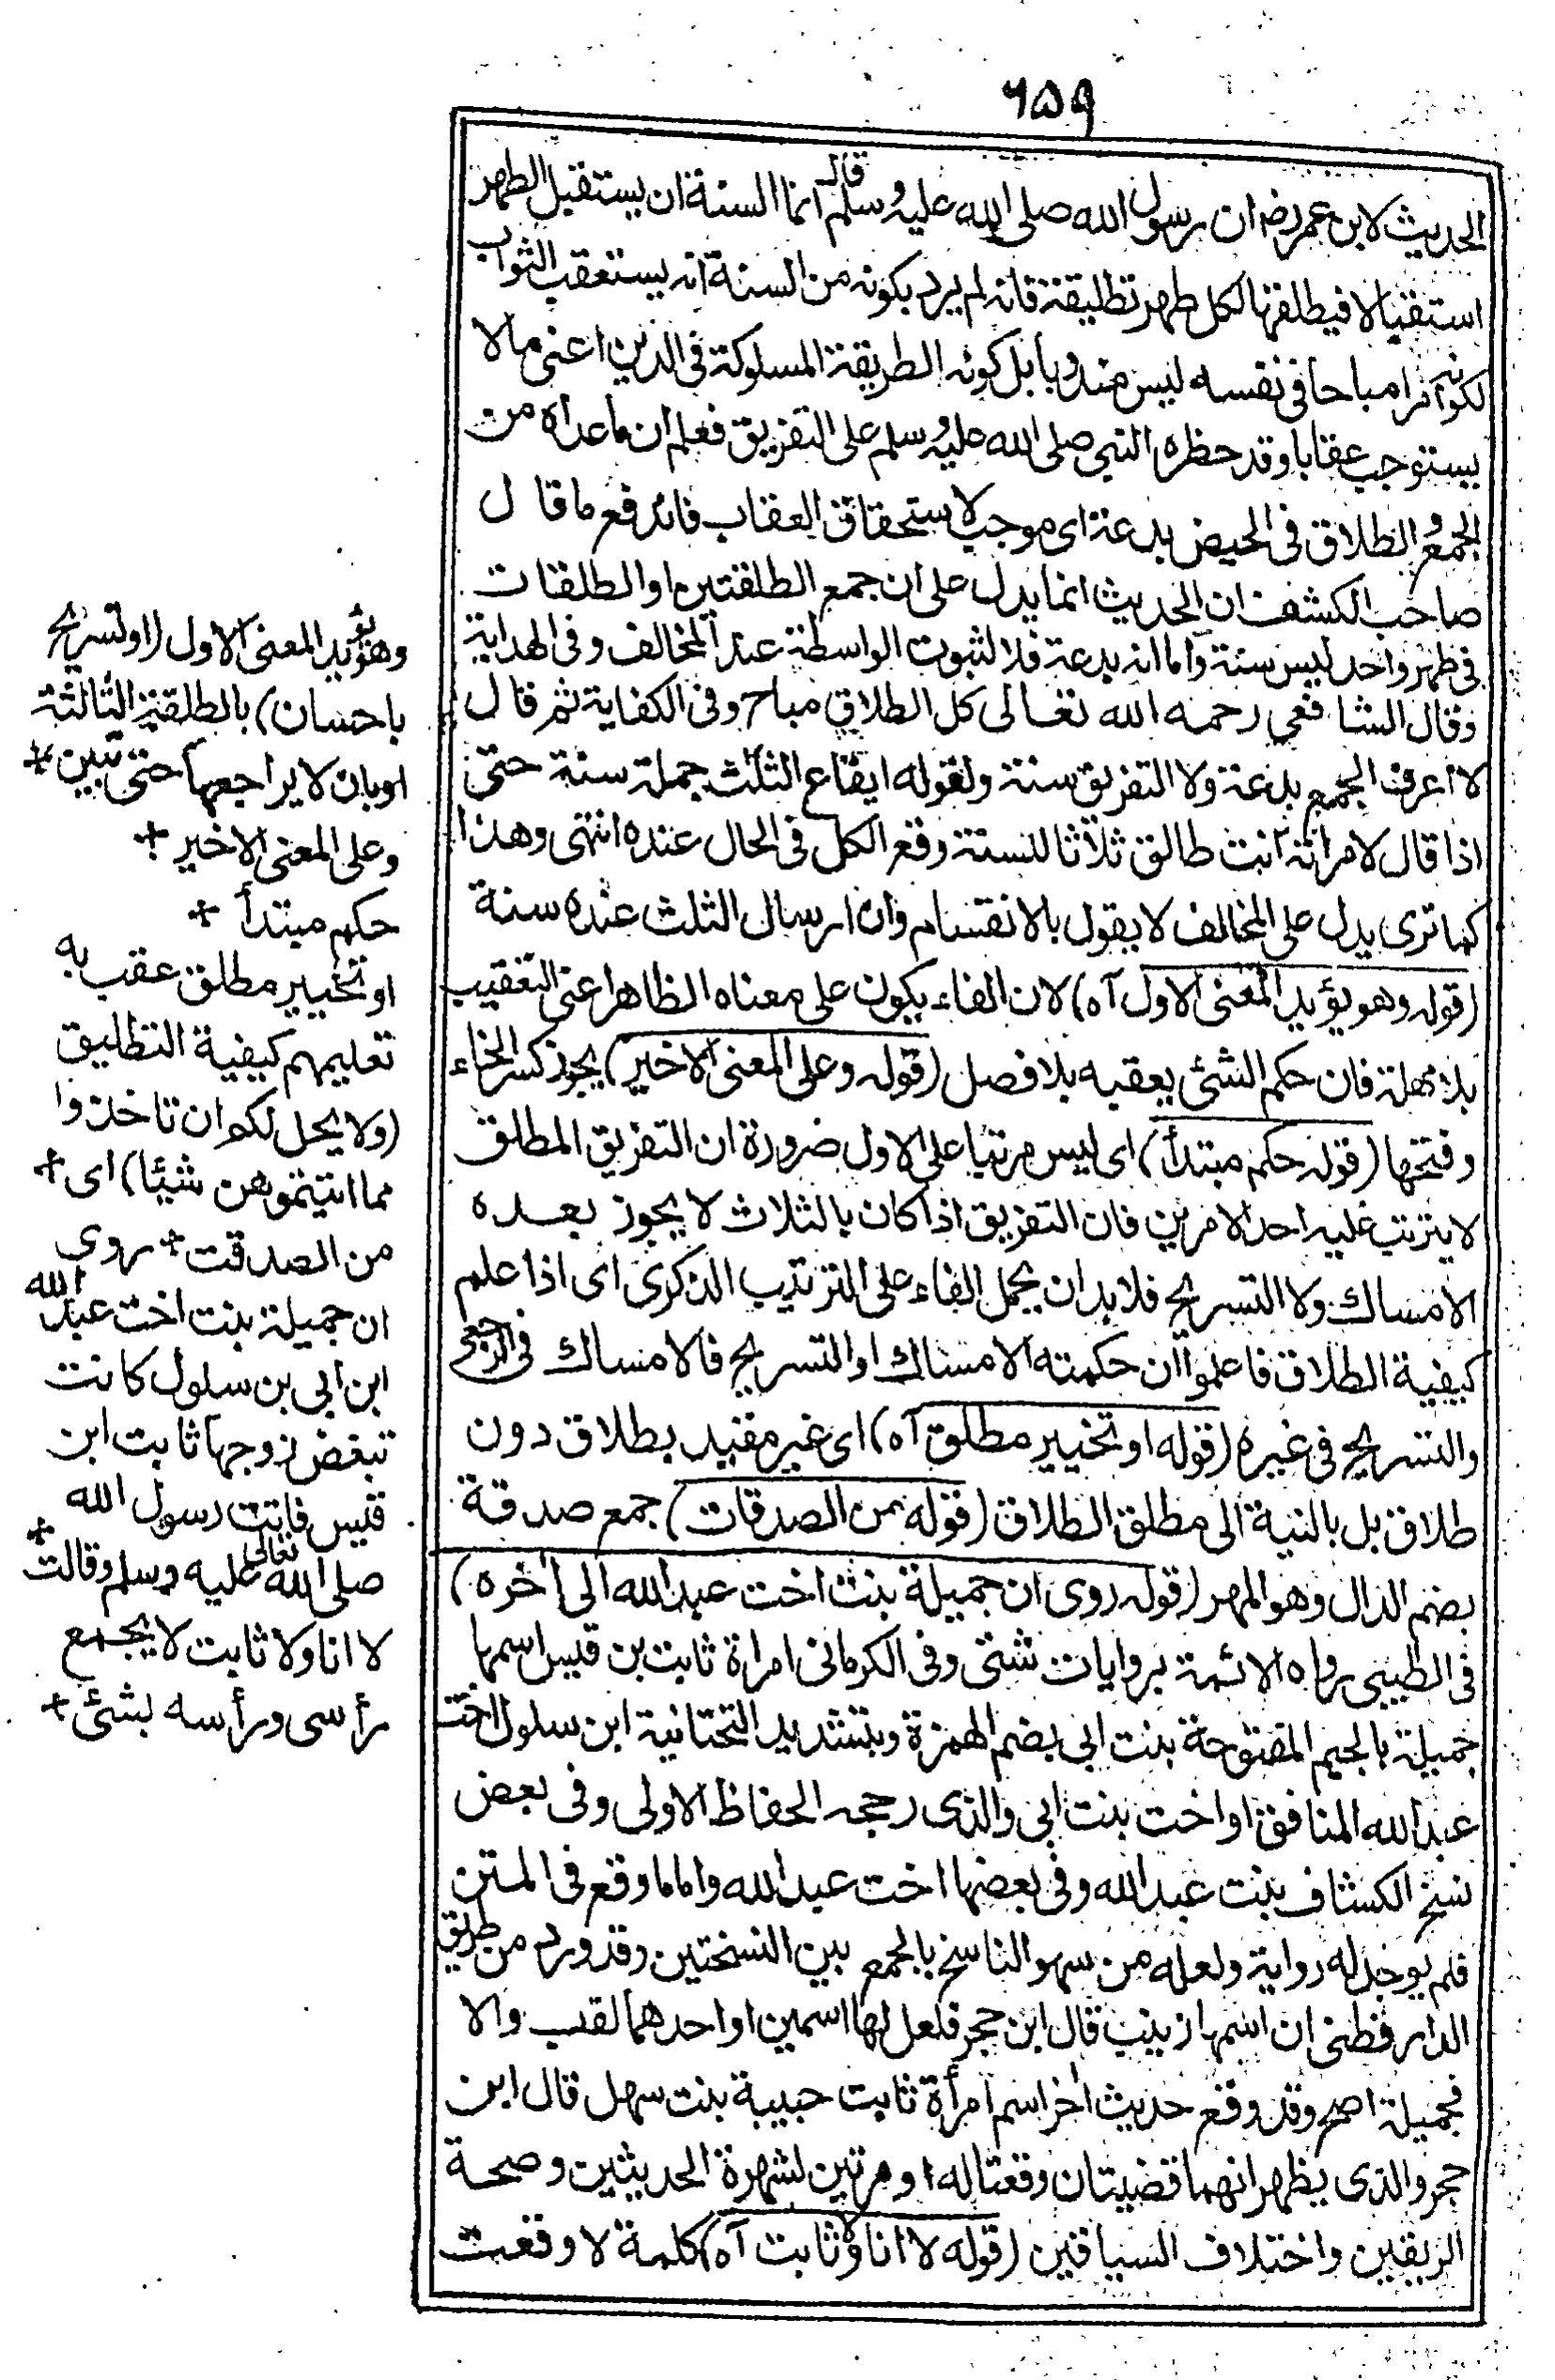 ٦٥٩
الحديث لابن عمر رضه ان رسول الله صلى الله عليه وسلم قال انما السنة ان يستقبل الطهر
استقبالا فيطلقها لكل طهر تطليقة فانه لم يرد بكونه من السنة انه يستعقب الثواب
لكونه امرا مباحا في نفسه ليس مندوبا بل كونه الطريقة المسلوكة في الدين اعنى مالا
يستوجب عقابا وقد حظره النبي صلى الله عليه وسلم على التفريق فعلم ان ماعداه من
الجمع والطلاق في الحيض بدعة اى موجب لاستحقاق العقاب فاندفع ما قال
صاحب الكشف ان الحديث انما يدل على ان جمع الطلقتين او الطلقات
في طهر واحد ليس سنة واما انه بدعة فلا لثبوت الواسطة عند المخالف وفى الهداية
وقال الشافعي رحمه الله تعالى كل الطلاق مباح وفى الكفاية ثم قال
لا اعرف الجمع بدعة ولا التفريق سنة ولقوله ايقاع الثلث جملة سنة حتى
اذا قال لامراته انت طالق ثلاثا للسنة وقع الكل فى الحال عنده انتهى وهذا
كما ترى يدل على المخالف لا يقول بالانقسام وان ارسال الثلث عنده سنة
(قوله وهو يؤيد المعنى الاول آه) لان الفاء يكون على معناه الظاهر اعنى التعقيب
بلا مهلة فان حكم الشئ يعقبه بلا فصل (قوله وعلى المعنى الاخير) يجوز كسر الخاء
وفتحها (قوله حكم مبتدأ) اى ليس مرتبا على الاول ضرورة ان التفريق المطلق
لا يترتب عليه احد الامرين فان التفريق اذا كان بالثلاث لا يجوز بعده
الامساك ولا التسريح فلابد ان يحمل الفاء على الترتيب الذكرى اى اذا علم
كيفية الطلاق فاعلموا ان حكمته الامساك او التسريح فالامساك فى الرجعى
والتسريح فى غيره (قوله او تخيير مطلق آه) اى غير مقيد بطلاق دون
طلاق بل بالنية الى مطلق الطلاق (قوله من الصدقات) جمع صدقة
بضم الدال وهو المهر (قوله روى ان جميلة بنت اخت عبد الله الى أخره)
فى الطيبى رواه الائمة بروايات شتى وفى الكرمانى امراة ثابت بن قيس اسمها
جميلة بالجيم المفتوحة بنت ابى بضم الهمزة وبتشديد التحتانية ابن سلول اخت
عبد الله المنافق او اخت بنت ابى والذى رجحه الحفاظ الاولى وفى بعض
نسخ الكشاف بنت عبد الله وفى بعضها اخت عبد الله واما ما وقع فى المتن
فلم يوجد له رواية ولعله من سهو الناسخ بالجمع بين النسختين وقد ورد من طريق
الدار قطنى ان اسمها زينب قال ابن حجر فلعل لها اسمين او احدهما لقب والا
فجميلة اصح وقد وقع حديث أخر اسم امرأة ثابت حبيبة بنت سهل قال ابن
حجر والذى يظهر انهما قضيتان وقعتا له او مرتين لشهرة الحديثين وصحة
الريقين واختلاف السياقين (قوله لا انا ولا ثابت آه) كلمة لا وقعت
وهو يؤيد المعنى الاول (او تسريح
باحسان) بالطلقة الثالثة
او بان لا يراجعها حتى تبين +
وعلى المعنى الاخير +
حكم مبتدأ +
او تخيير مطلق عقب به
تعليمهم كيفية التطليق
(ولا يحل لكم ان تاخذوا
مما اتيتموهن شيئا) اى +
من الصدقت + روى
ان جميلة بنت اخت عبد الله
ابن ابى بن سلول كانت
تبغض زوجها ثابت ابن
قيس فاتت رسول الله
صلى الله تعالى عليه وسلم وقالت +
لا انا ولا ثابت لا يجمع
رأسى ورأسه بشئ +